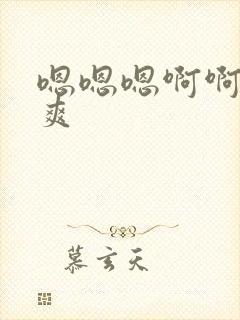 嗯嗯嗯啊啊
爽
慕玄天